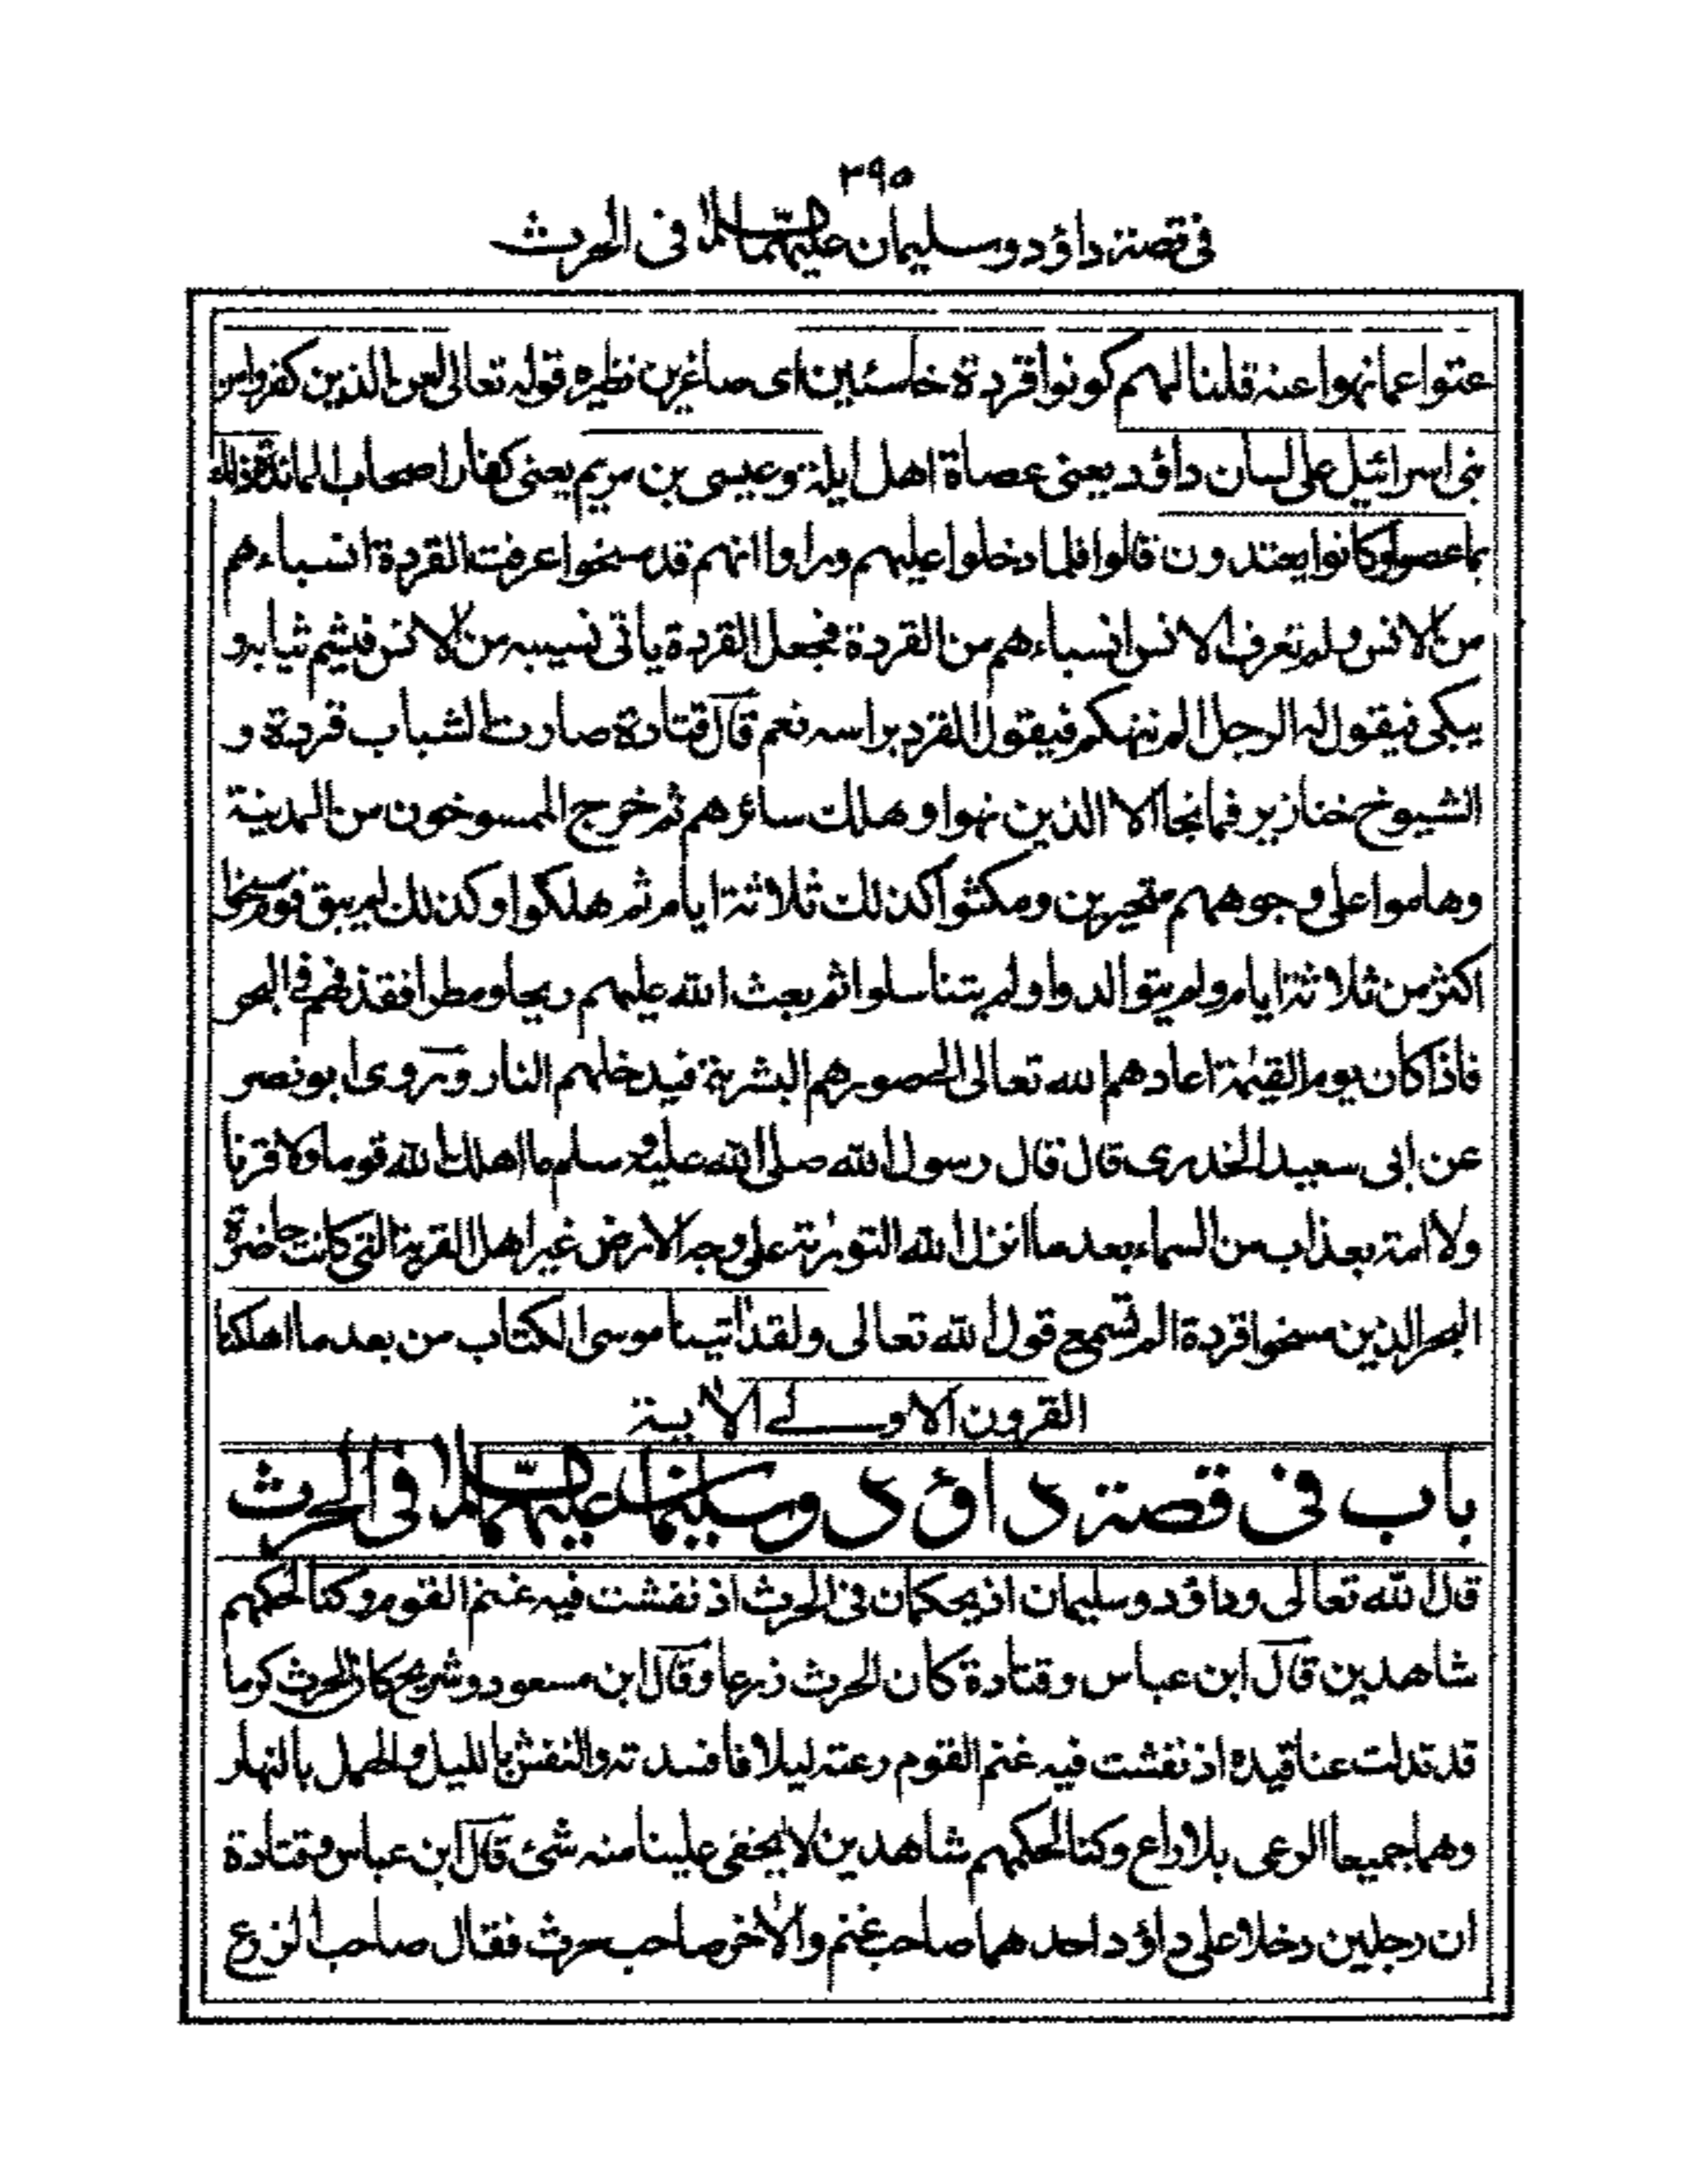 ٣٩٥
فى قصة داؤد وسليمان عليهما السلام فى الحرث
عتوا عما نهوا عنه قلنا لهم كونوا قردة خاسئين اى صاغرين نظيره قوله تعالى لعن الذين كفروا من
بنى اسرائيل على لسان داؤد يعنى عصاة اهل ايلة وعيسى بن مريم يعنى كفارا اصحاب المائدة
بما عصوا وكانوا يعتدون قالوا فلما دخلوا عليهم وراوا انهم قد مسخوا عرفت القردة انسباءهم
من الانس ولم تعرف الانس انسباءهم من القردة فجعل القردة ياتى نسيبه من الانس فيشم ثيابه و
يبكى فيقول له الرجل الم ننهكم فيقول القرد براسه نعم قال قتادة صارت الشباب قردة و
الشيوخ خنازير فما نجا الا الذين نهوا وهلك سائرهم ثم خرج الممسوخون من المدينة
وهاموا على وجوههم متحيرين ومكثوا كذلك ثلاثة ايام ثم هلكوا وكذلك لم يبق قوم مسخوا
اكثر من ثلاثة ايام ولم يتوالدوا ولم يتناسلوا ثم بعث الله عليهم ريحا ومطرا فقذفهم فى البحر
فاذا كان يوم القيمة اعادهم الله تعالى الى صورهم البشرية فيدخلهم النار وروى ابو نصر
عن ابى سعيد الخدرى قال قال رسول الله صلى الله عليه وسلم ما اهلك الله قوما ولا قرنا
ولا امة بعذاب من السماء بعد ما انزل الله التورٰىة على وجه الارض غير اهل القرية التى كانت حاضرة
البحر الذين مسخوا قردة الم تسمع قول الله تعالى ولقد اٰتينا موسى الكتاب من بعد ما اهلكنا
القرون الاولى الاٰية
باب فى قصة داؤد وسليمان عليهما السلام فى الحرث
قال الله تعالى وداؤد وسليمان اذ يحكمان فى الحرث اذ نفشت فيه غنم القوم وكنا لحكمهم
شاهدين قال ابن عباس وقتادة كان الحرث زرعا وقال ابن مسعود وشريح كان الحرث كرما
قد تدلت عناقيده اذ نفشت فيه غنم القوم رعته ليلا فافسدته والنفش بالليل والهمل بالنهار
وهما جميعا الرعى بلا راع وكنا لحكمهم شاهدين لا يخفى علينا منه شئ قال ابن عباس وقتادة
ان رجلين دخلا على داؤد احدهما صاحب غنم والاٰخر صاحب حرث فقال صاحب الزرع